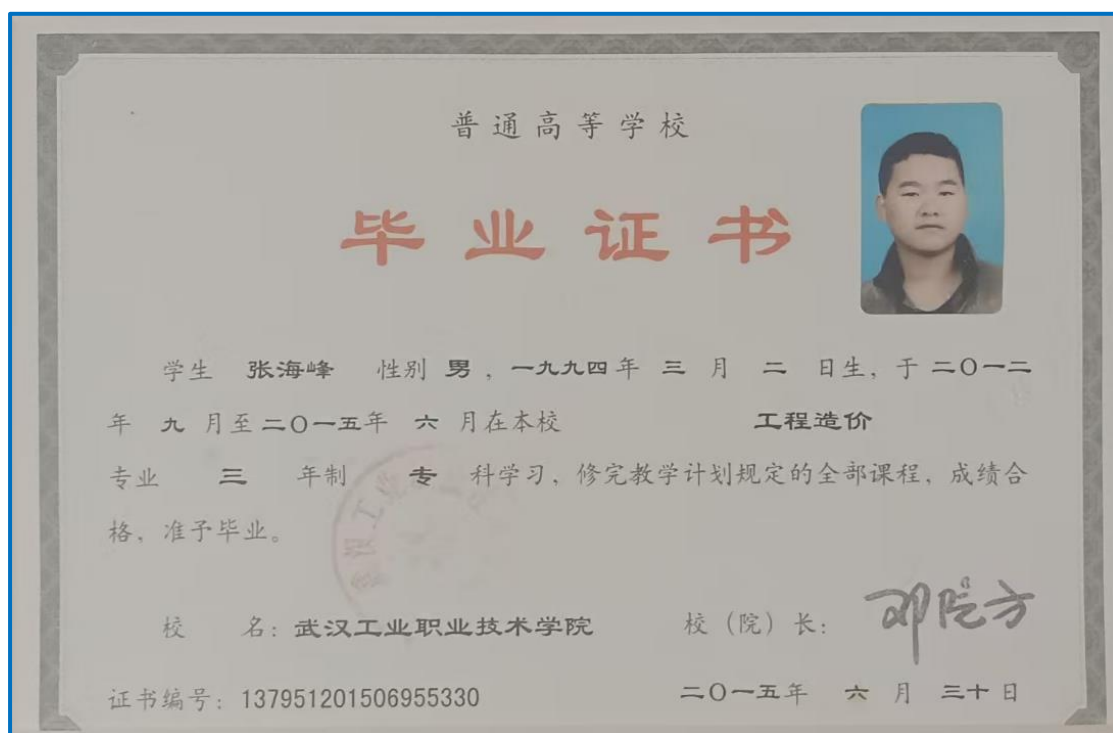 普通高等学校
毕业证书
学生 张海峰 性别 男，一九九四年 三 月 二 日生，于二〇一二
年 九 月至二〇一五年 六 月在本校 工程造价
专业 三 年制 专 科学习，修完教学计划规定的全部课程，成绩合
格，准予毕业。
校 名：武汉工业职业技术学院 校（院）长：
证书编号：137951201506955330 二〇一五年 六 月 三十日